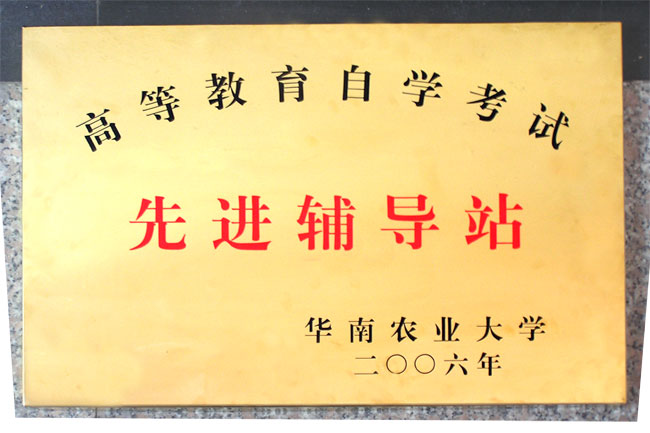 高等教育自学考试
先进辅导站
华南农业大学
二〇〇六年